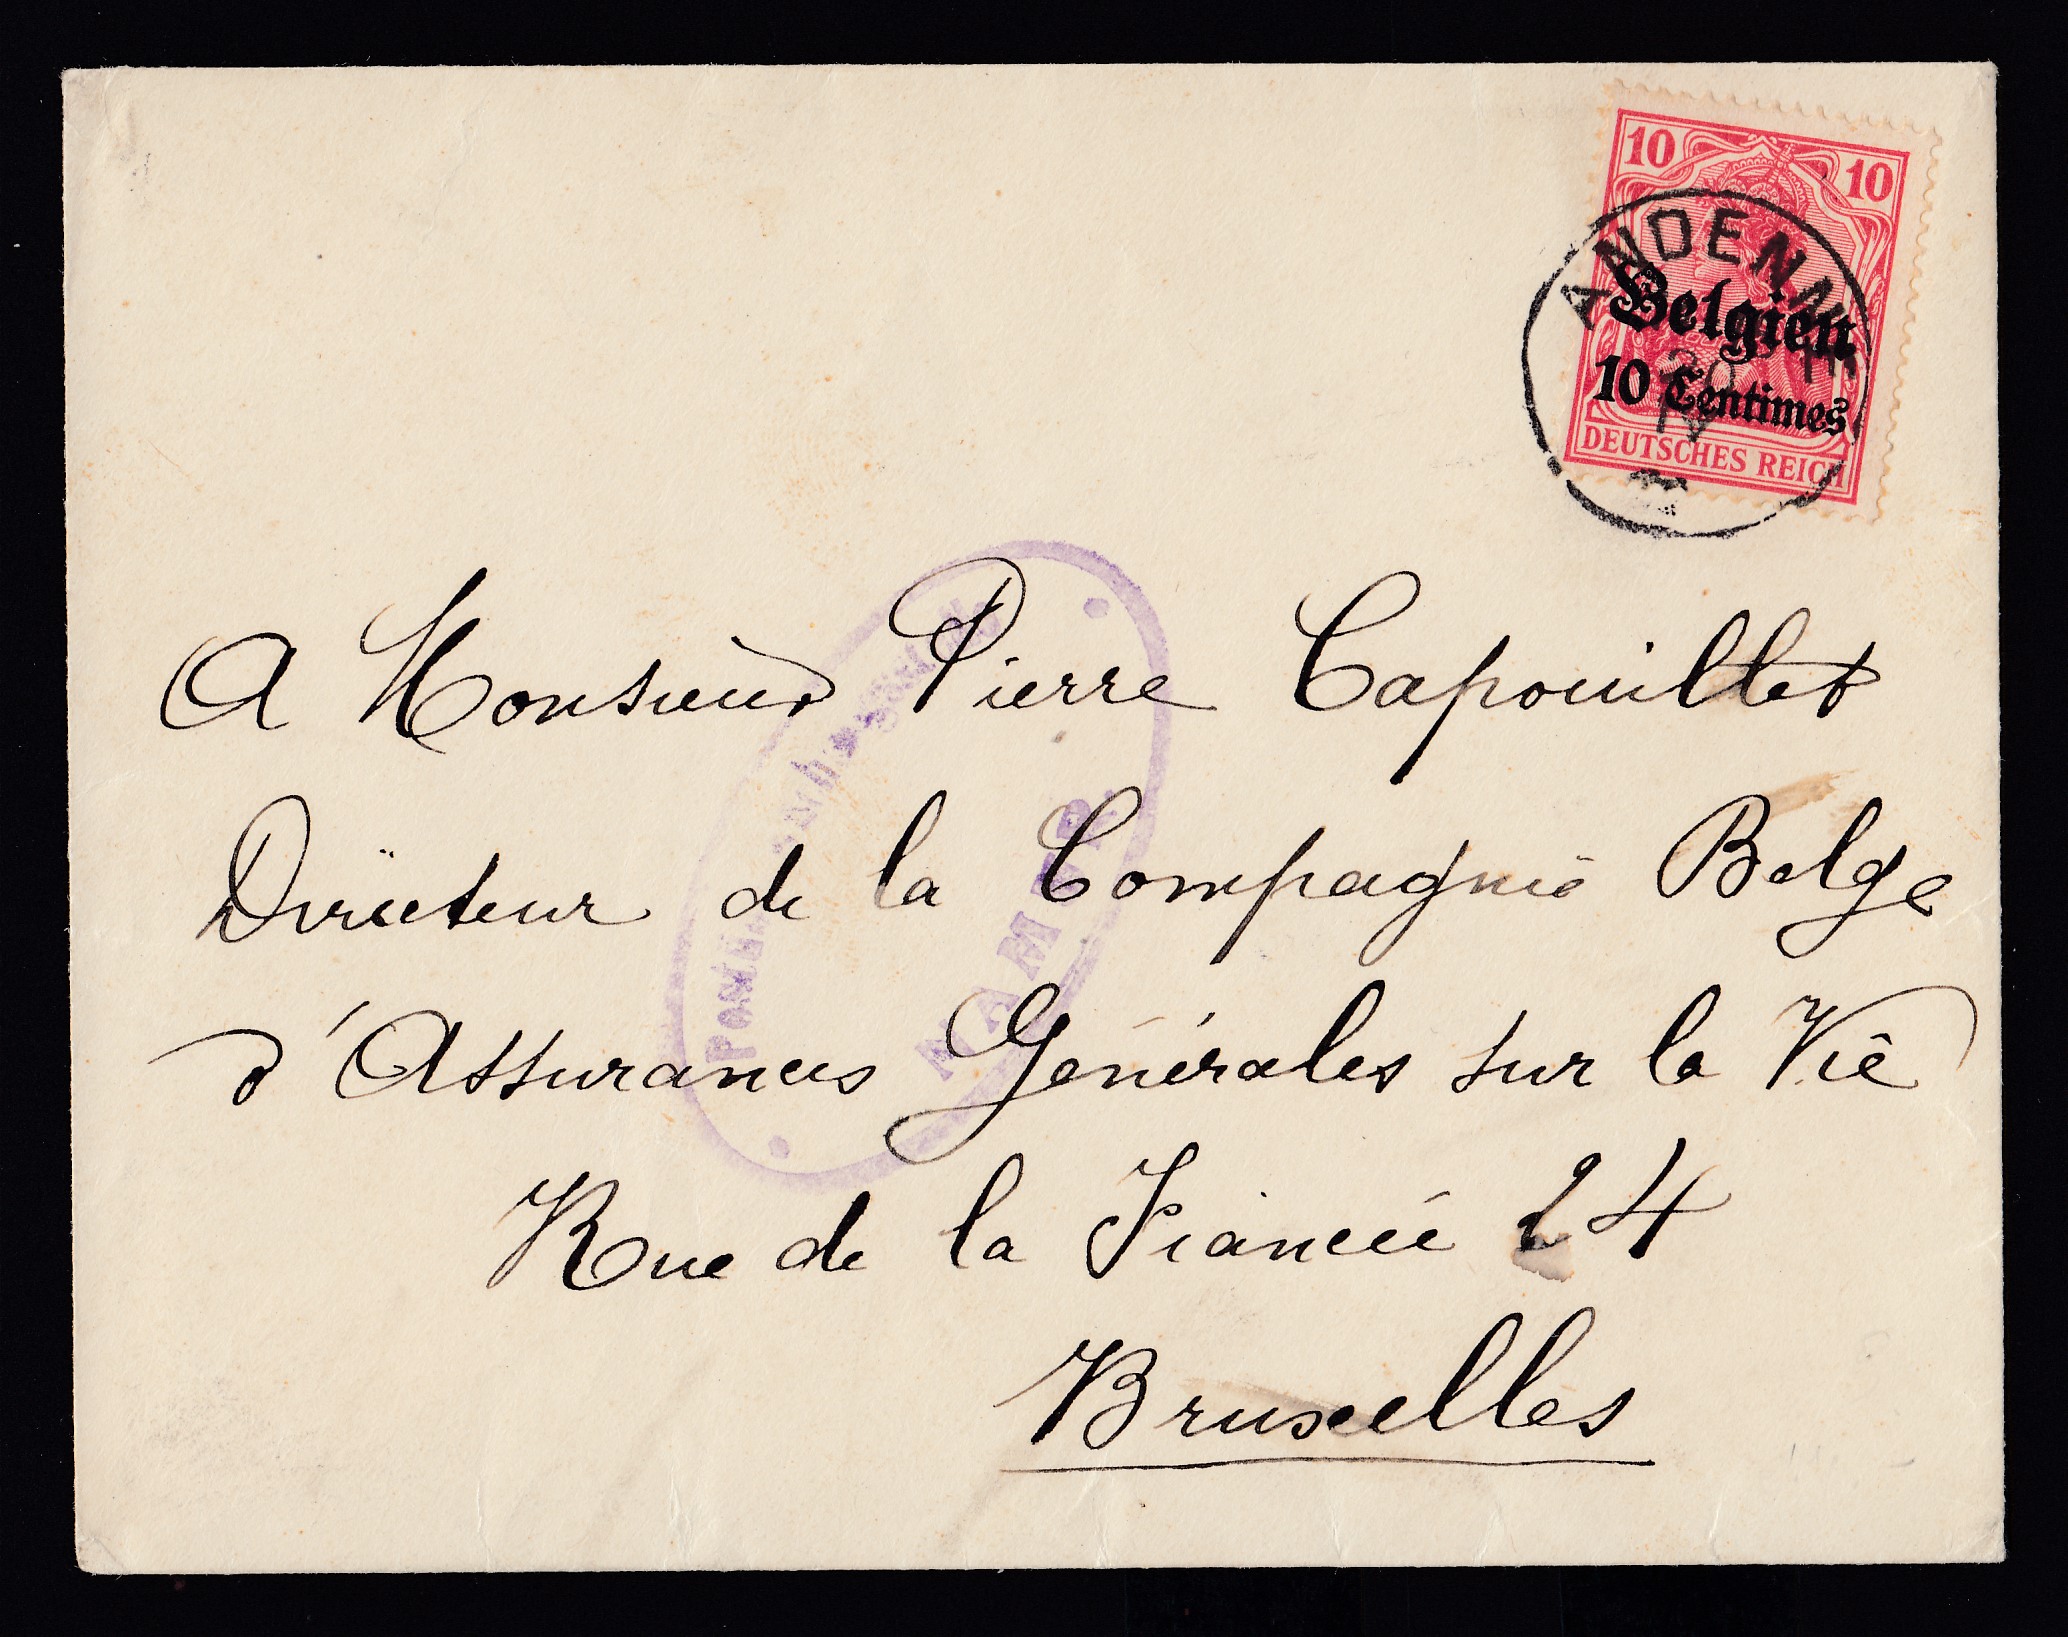 10 10
ANDENNE
Belgien
10 Centimes
DEUTSCHES REICH
A Monsieur Pierre Capouillet
Directeur de la Compagnie Belge
d'Assurances Générales sur la Vie
Rue de la Fiancée 24
Bruxelles
NAMUR.